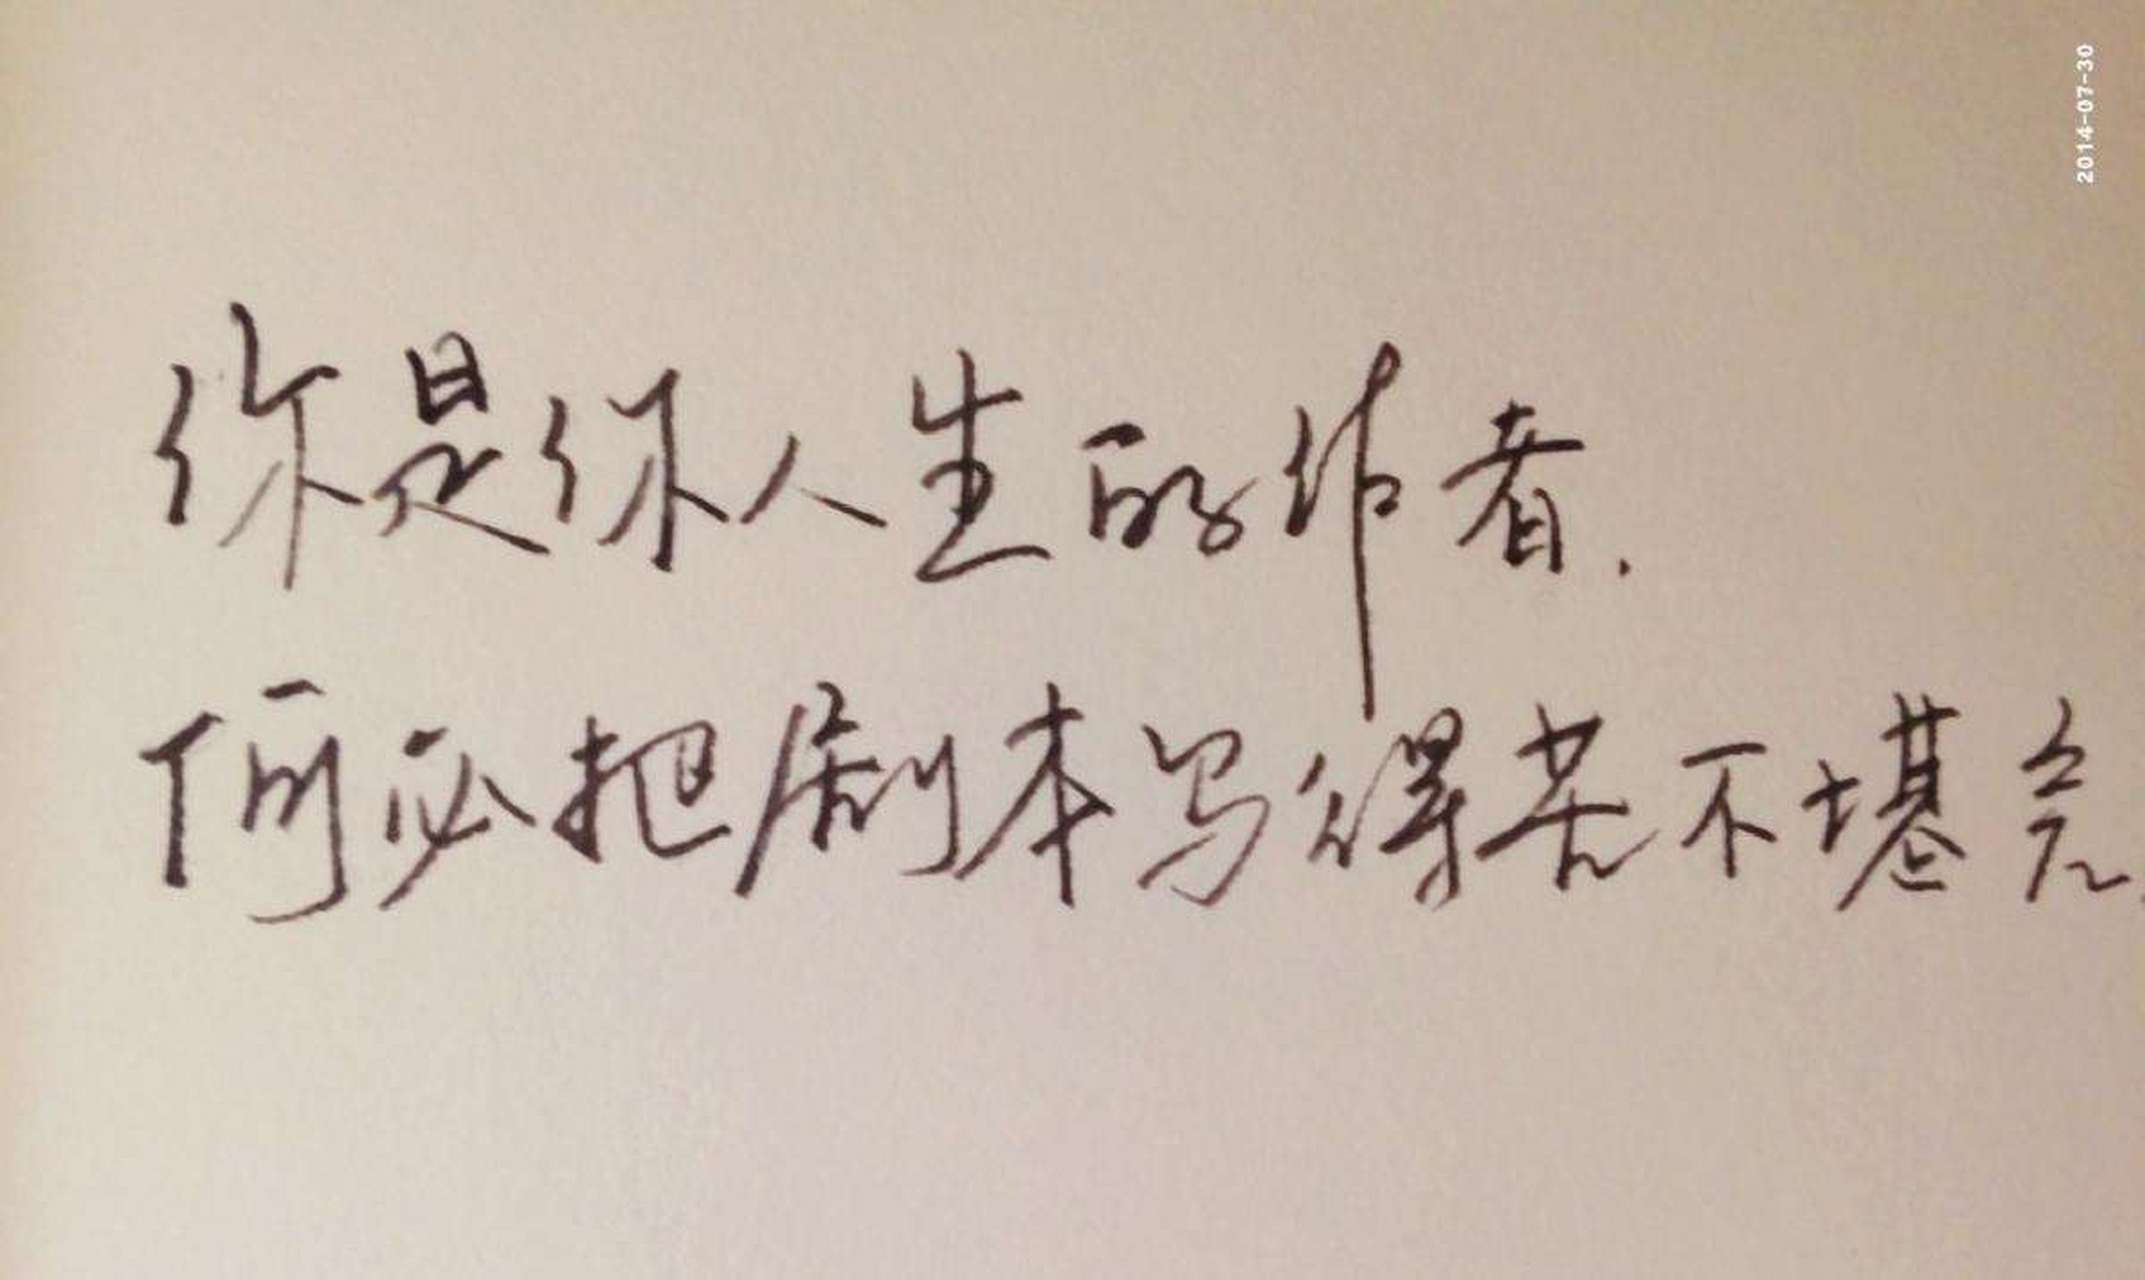 2014-07-30
你是你人生的作者.
何必把剧本写得苦不堪言.